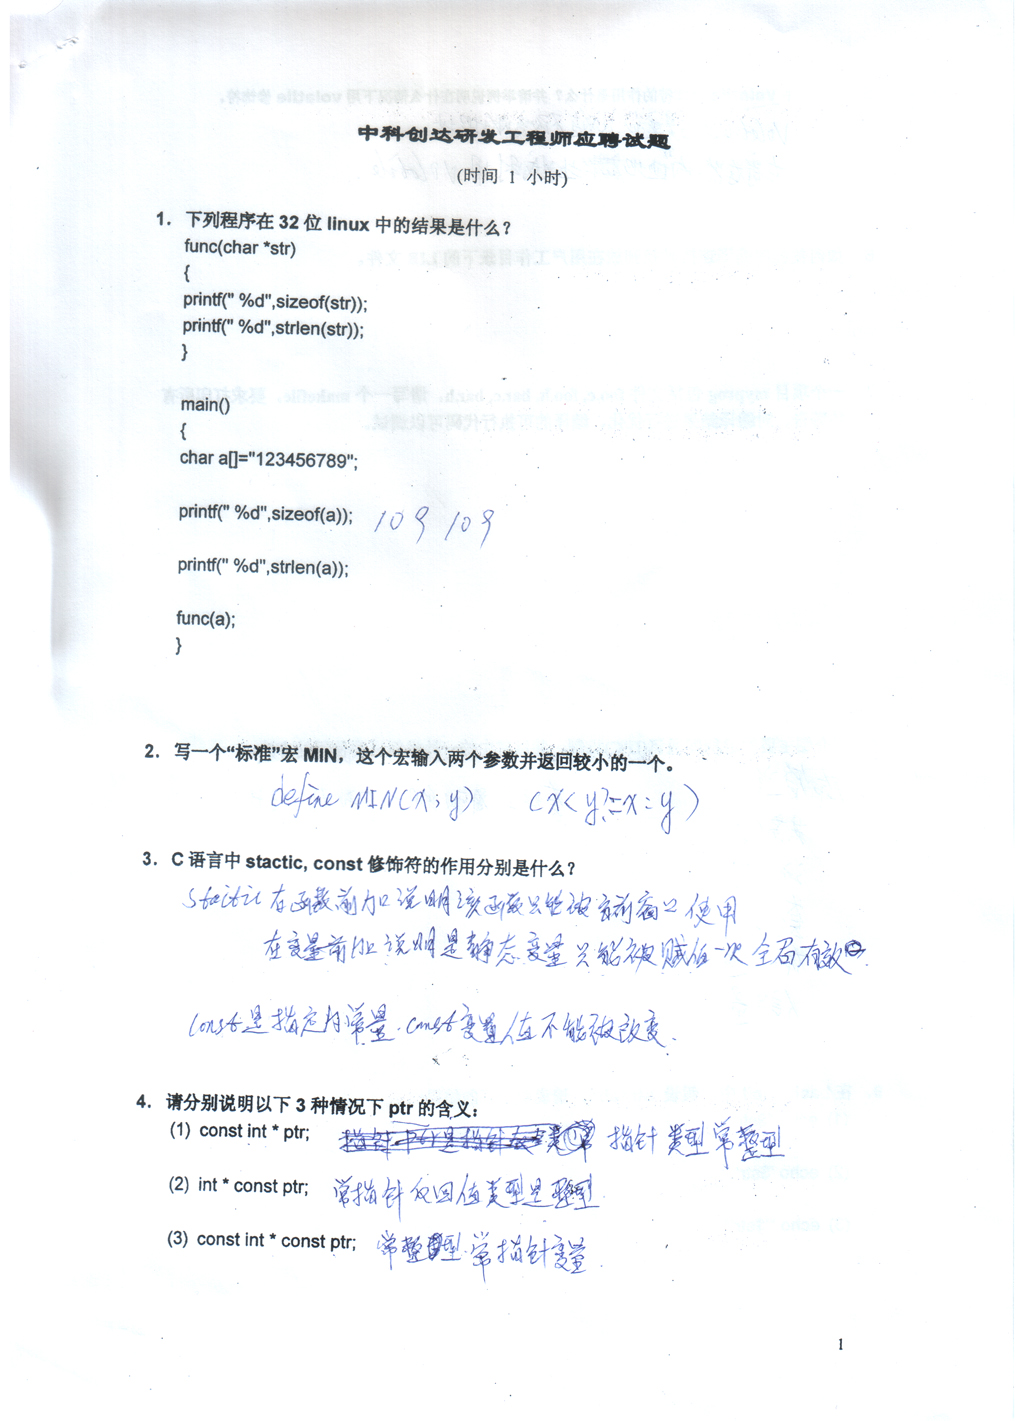 中科创达研发工程师应聘试题
(时间 1 小时)
1. 下列程序在 32 位 linux 中的结果是什么?
func(char *str)
{
printf(" %d",sizeof(str));
printf(" %d",strlen(str));
}
main()
{
char a[]="123456789";
printf(" %d",sizeof(a)); 10 9 10 9
printf(" %d",strlen(a));
func(a);
}
2. 写一个“标准”宏 MIN，这个宏输入两个参数并返回较小的一个。
define MIN(x,y) (x<y?=x:y)
3. C 语言中 stactic, const 修饰符的作用分别是什么?
Static 在函数前加 说明该函数只能被当前窗口使用
在变量前加 说明是静态变量 只能被赋值一次 全局有效
const是指定为常量.const变量值不能被改变.
4. 请分别说明以下 3 种情况下 ptr 的含义:
(1) const int * ptr; 指针 类型常整型
(2) int * const ptr; 常指针 返回值类型是整型
(3) const int * const ptr; 常整型.常指针变量
1